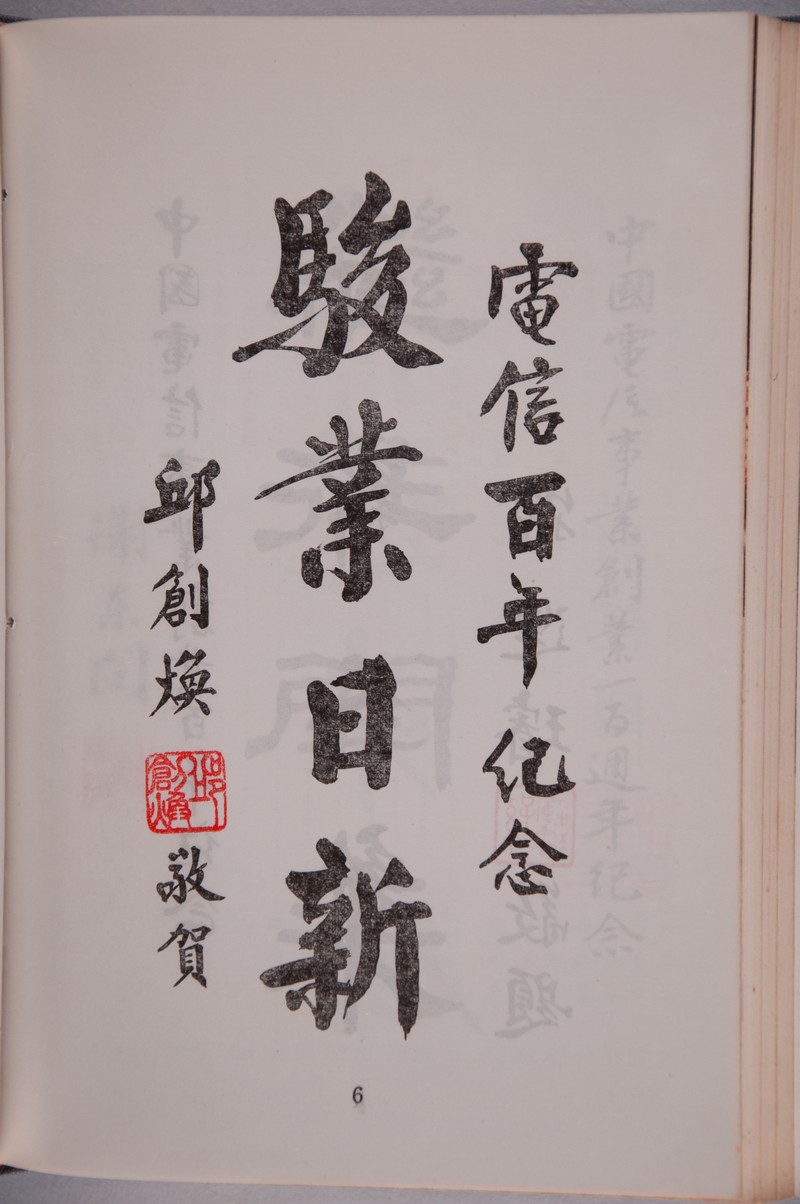 電信百年紀念
駿業日新
邱創煥
邱創煥
敬賀
6